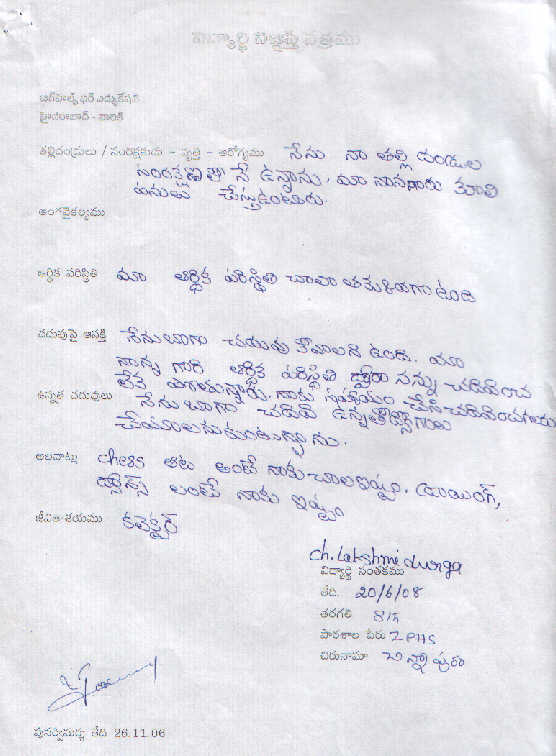 విద్యార్థి విజ్ఞప్తి పత్రము
హైదరాబాద్ -
తల్లిదండ్రులు / సంరక్షకుడు - వృత్తి - ఆరోగ్యము నేను నా తల్లి దండ్రుల
సంరక్షణలో నే ఉన్నాను. మా నాన్నగారు కూలి
పనులు చేస్తుఉంటారు.
అంగవైకల్యము
ఆర్థిక పరిస్థితి మా ఆర్థిక పరిస్థితి చాలా తక్కువగా ఉంది
చదువుపై ఆసక్తి నేను బాగా చదువు కోవాలని ఉంది. మా
నాన్న గారి ఆర్థిక పరిస్థితి ద్వారా నన్ను చదివించ
లేక పోతున్నారు. నాకు సహాయం చేసి చదివించగలరు
ఉన్నత చదువులు నేను బాగా చదివి ఉన్నత
చేయాలనుకుంటున్నాను.
అలవాట్లు chess ఆట అంటే నాకు చాల ఇష్టం. డ్రాయింగ్,
డ్యాన్స్ అంటే నాకు ఇష్టం
జీవితాశయము కలెక్టర్
ch. Lakshmi durga
విద్యార్థి సంతకము
తేది. 20/6/08
తరగతి 8th
పాఠశాల పేరు ZPHS
చిరునామా చిన్నాపురం
పునర్విమర్శ తేది 26.11.06